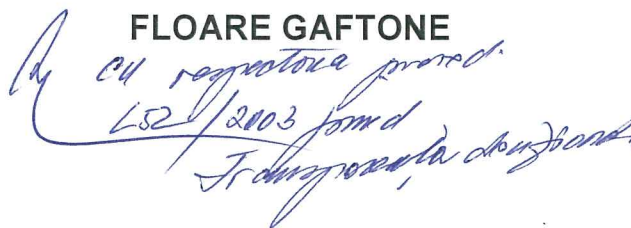 FLOARE GAFTONE
cu respectarea preved.
L52/2003 privind
Transparența decizional